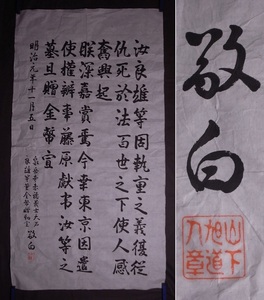 汝良雄等固執重之義復從
仇死於法百世之下使人感
奮興起
朕深嘉賞焉今幸東京因遣
使權辦事藤原献弔汝等之
墓且賜金幣宣
明治元年十一月五日
敬白
敬白
山下
旭道
人章